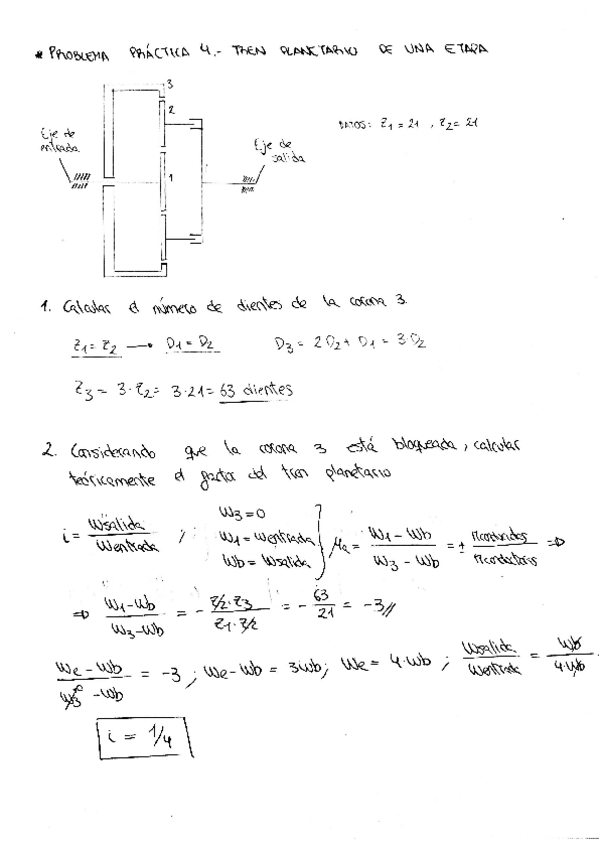 * PROBLEMA PRÁCTICA 4.- TREN PLANETARIO DE UNA ETAPA
3
2
Eje de entrada
Eje de salida
1
DATOS: Z1 = 21 , Z2 = 21
1. Calcular el número de dientes de la corona 3.
Z1 = Z2 → D1 = D2 D3 = 2D2 + D1 = 3·D2
Z3 = 3·Z2 = 3·21 = 63 dientes
2. Considerando que la corona 3 está bloqueada, calcular
teóricamente el factor del tren planetario
i = Wsalida / Wentrada ; W3 = 0 W1 = Wentrada Wb = Wsalida } μa = (W1 - Wb) / (W3 - Wb) = ± πconducidos / πconductoras ⇒
⇒ (W1 - Wb) / (W3 - Wb) = - (Z2·Z3) / (Z1·Z2) = - 63/21 = -3 //
(We - Wb) / (W3⁰ - Wb) = -3 ; We - Wb = 3Wb ; We = 4·Wb ; Wsalida / Wentrada = Wb / 4·Wb
i = 1/4